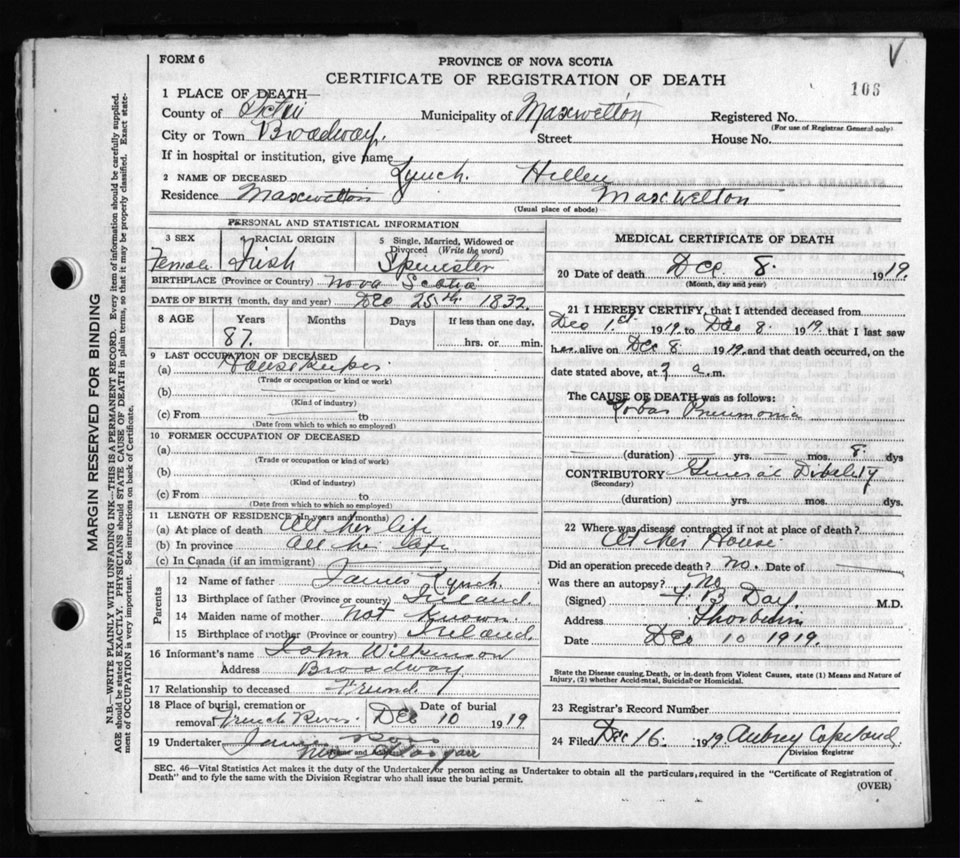 FORM 6
PROVINCE OF NOVA SCOTIA
CERTIFICATE OF REGISTRATION OF DEATH
106
1 PLACE OF DEATH—
County of Pictou Municipality of Maxwelton Registered No.
(For use of Registrar General only)
City or Town Broadway. Street House No.
If in hospital or institution, give name
2 NAME OF DECEASED Lynch. Hellen
Residence Maxwelton Maxwelton
(Usual place of abode)
PERSONAL AND STATISTICAL INFORMATION
3 SEX Female
4 RACIAL ORIGIN Irish
5 Single, Married, Widowed or Divorced (Write the word) Spinster
BIRTHPLACE (Province or Country) Nova Scotia
DATE OF BIRTH (month, day and year) Dec 25th 1832
8 AGE Years Months Days If less than one day,
87. hrs. or min.
9 LAST OCCUPATION OF DECEASED
(a) Housekeeper
(Trade or occupation or kind or work)
(b)
(Kind of industry)
(c) From to
(Date from which to which so employed)
10 FORMER OCCUPATION OF DECEASED
(a)
(Trade or occupation or kind or work)
(b)
(Kind of industry)
(c) From to
(Date from which to which so employed)
11 LENGTH OF RESIDENCE (In years and months)
(a) At place of death All her life
(b) In province All her life
(c) In Canada (if an immigrant)
Parents
12 Name of father James Lynch.
13 Birthplace of father (Province or country) Ireland.
14 Maiden name of mother Not Known
15 Birthplace of mother (Province or country) Ireland
16 Informant's name John Wilkinson
Address Broadway
17 Relationship to deceased Friend.
18 Place of burial, cremation or removal French River Date of burial Dec 10 1919
19 Undertaker James Ross
New Glasgow
MEDICAL CERTIFICATE OF DEATH
20 Date of death Dec 8. 1919.
(Month, day and year)
21 I HEREBY CERTIFY, that I attended deceased from
Dec 1st 1919 to Dec 8. 1919 that I last saw
her alive on Dec 8 1919. and that death occurred, on the
date stated above, at a.m.
The CAUSE OF DEATH was as follows:
Lobar Pneumonia
(duration) yrs. mos. 8. dys
CONTRIBUTORY General Debility
(Secondary)
(duration) yrs. mos. dys.
22 Where was disease contracted if not at place of death?
At her House
Did an operation precede death? no. Date of
Was there an autopsy? No
(Signed) Day. M.D.
Address Thorburn
Date Dec 10 1919.
State the Disease causing Death, or in death from Violent Causes, state (1) Means and Nature of
Injury, (2) whether Accidental, Suicidal or Homicidal.
23 Registrar's Record Number
24 Filed Dec 16. 1919 Aubrey Copeland.
Division Registrar
SEC. 46—Vital Statistics Act makes it the duty of the Undertaker or person acting as Undertaker to obtain all the particulars, required in the "Certificate of Registration of
Death" and to fyle the same with the Division Registrar who shall issue the burial permit.
(OVER)
MARGIN RESERVED FOR BINDING
N.B—WRITE PLAINLY WITH UNFADING INK—THIS IS A PERMANENT RECORD. Every item of information should be carefully supplied.
AGE should be stated EXACTLY. PHYSICIANS should STATE CAUSE OF DEATH in plain terms, so that it may be properly classified. Exact state-
ment of OCCUPATION is very important. See instructions on back of Certificate.